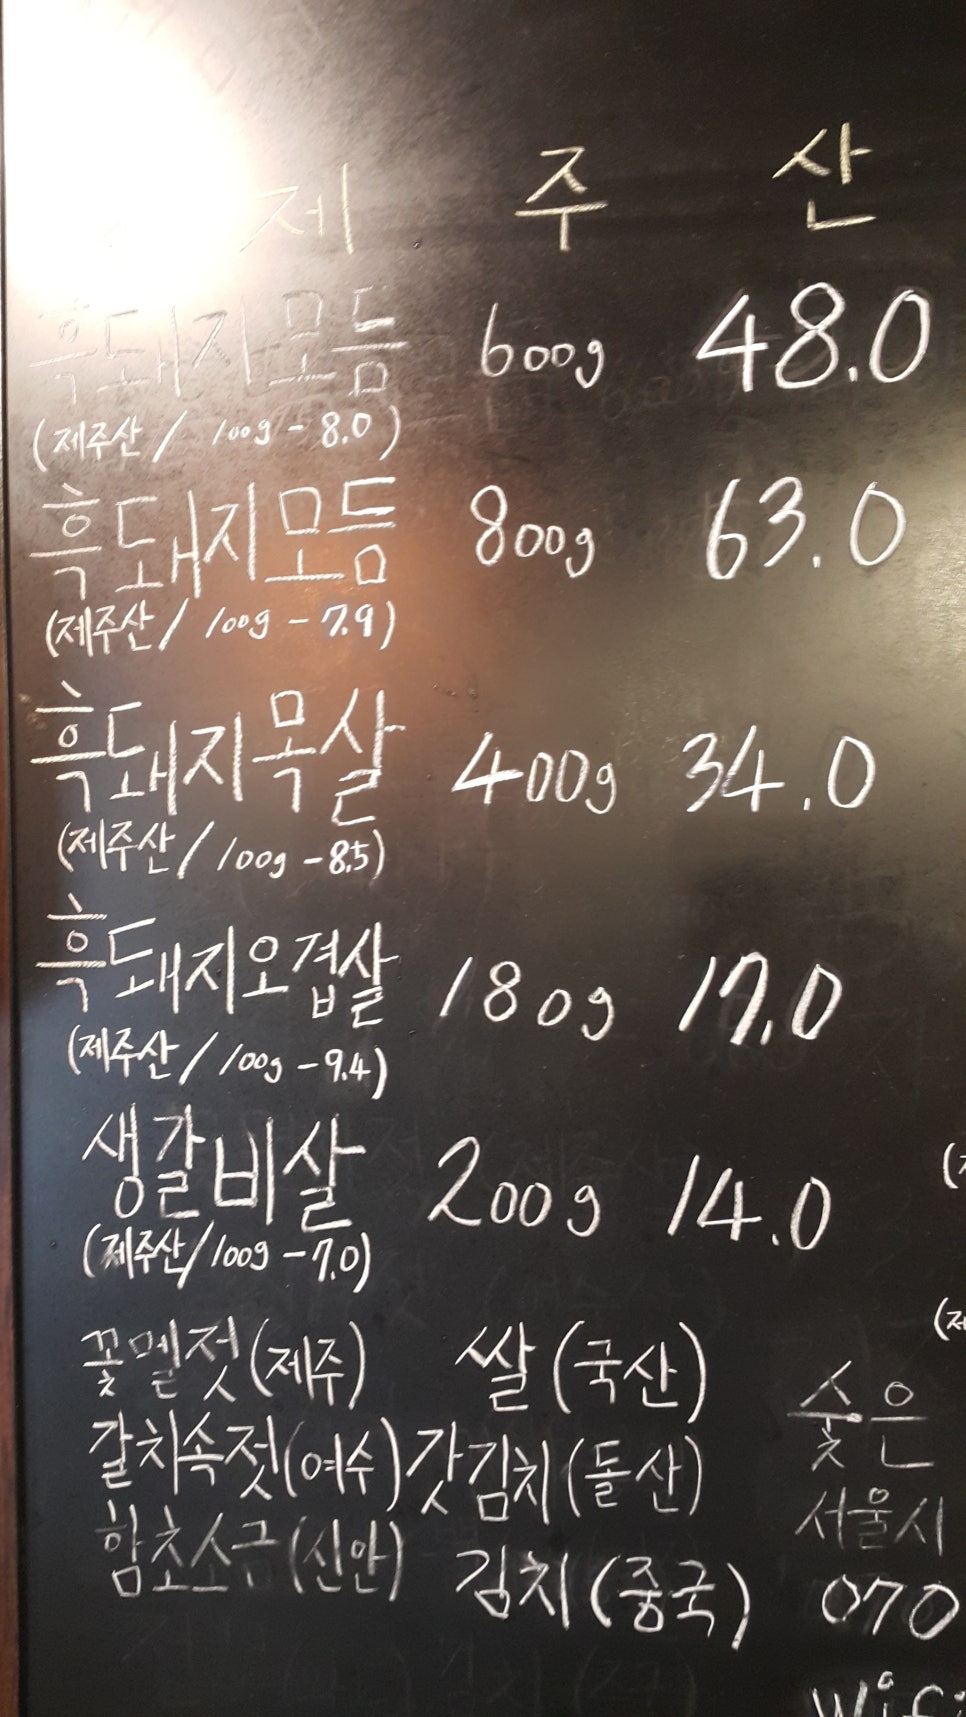 제 주 산
흑돼지모듬 600g 48.0
(제주산/ 100g - 8.0)
흑돼지모듬 800g 63.0
(제주산/ 100g - 7.9)
흑돼지목살 400g 34.0
(제주산/100g - 8.5)
흑돼지오겹살 180g 17.0
(제주산/100g - 9.4)
생갈비살 200g 14.0
(제주산/100g - 7.0)
꽃멜젓(제주) 쌀(국산)
갈치속젓(여수) 갓김치(돌산)
함초소금(신안) 김치(중국)
숯은
서울시
070
wifi